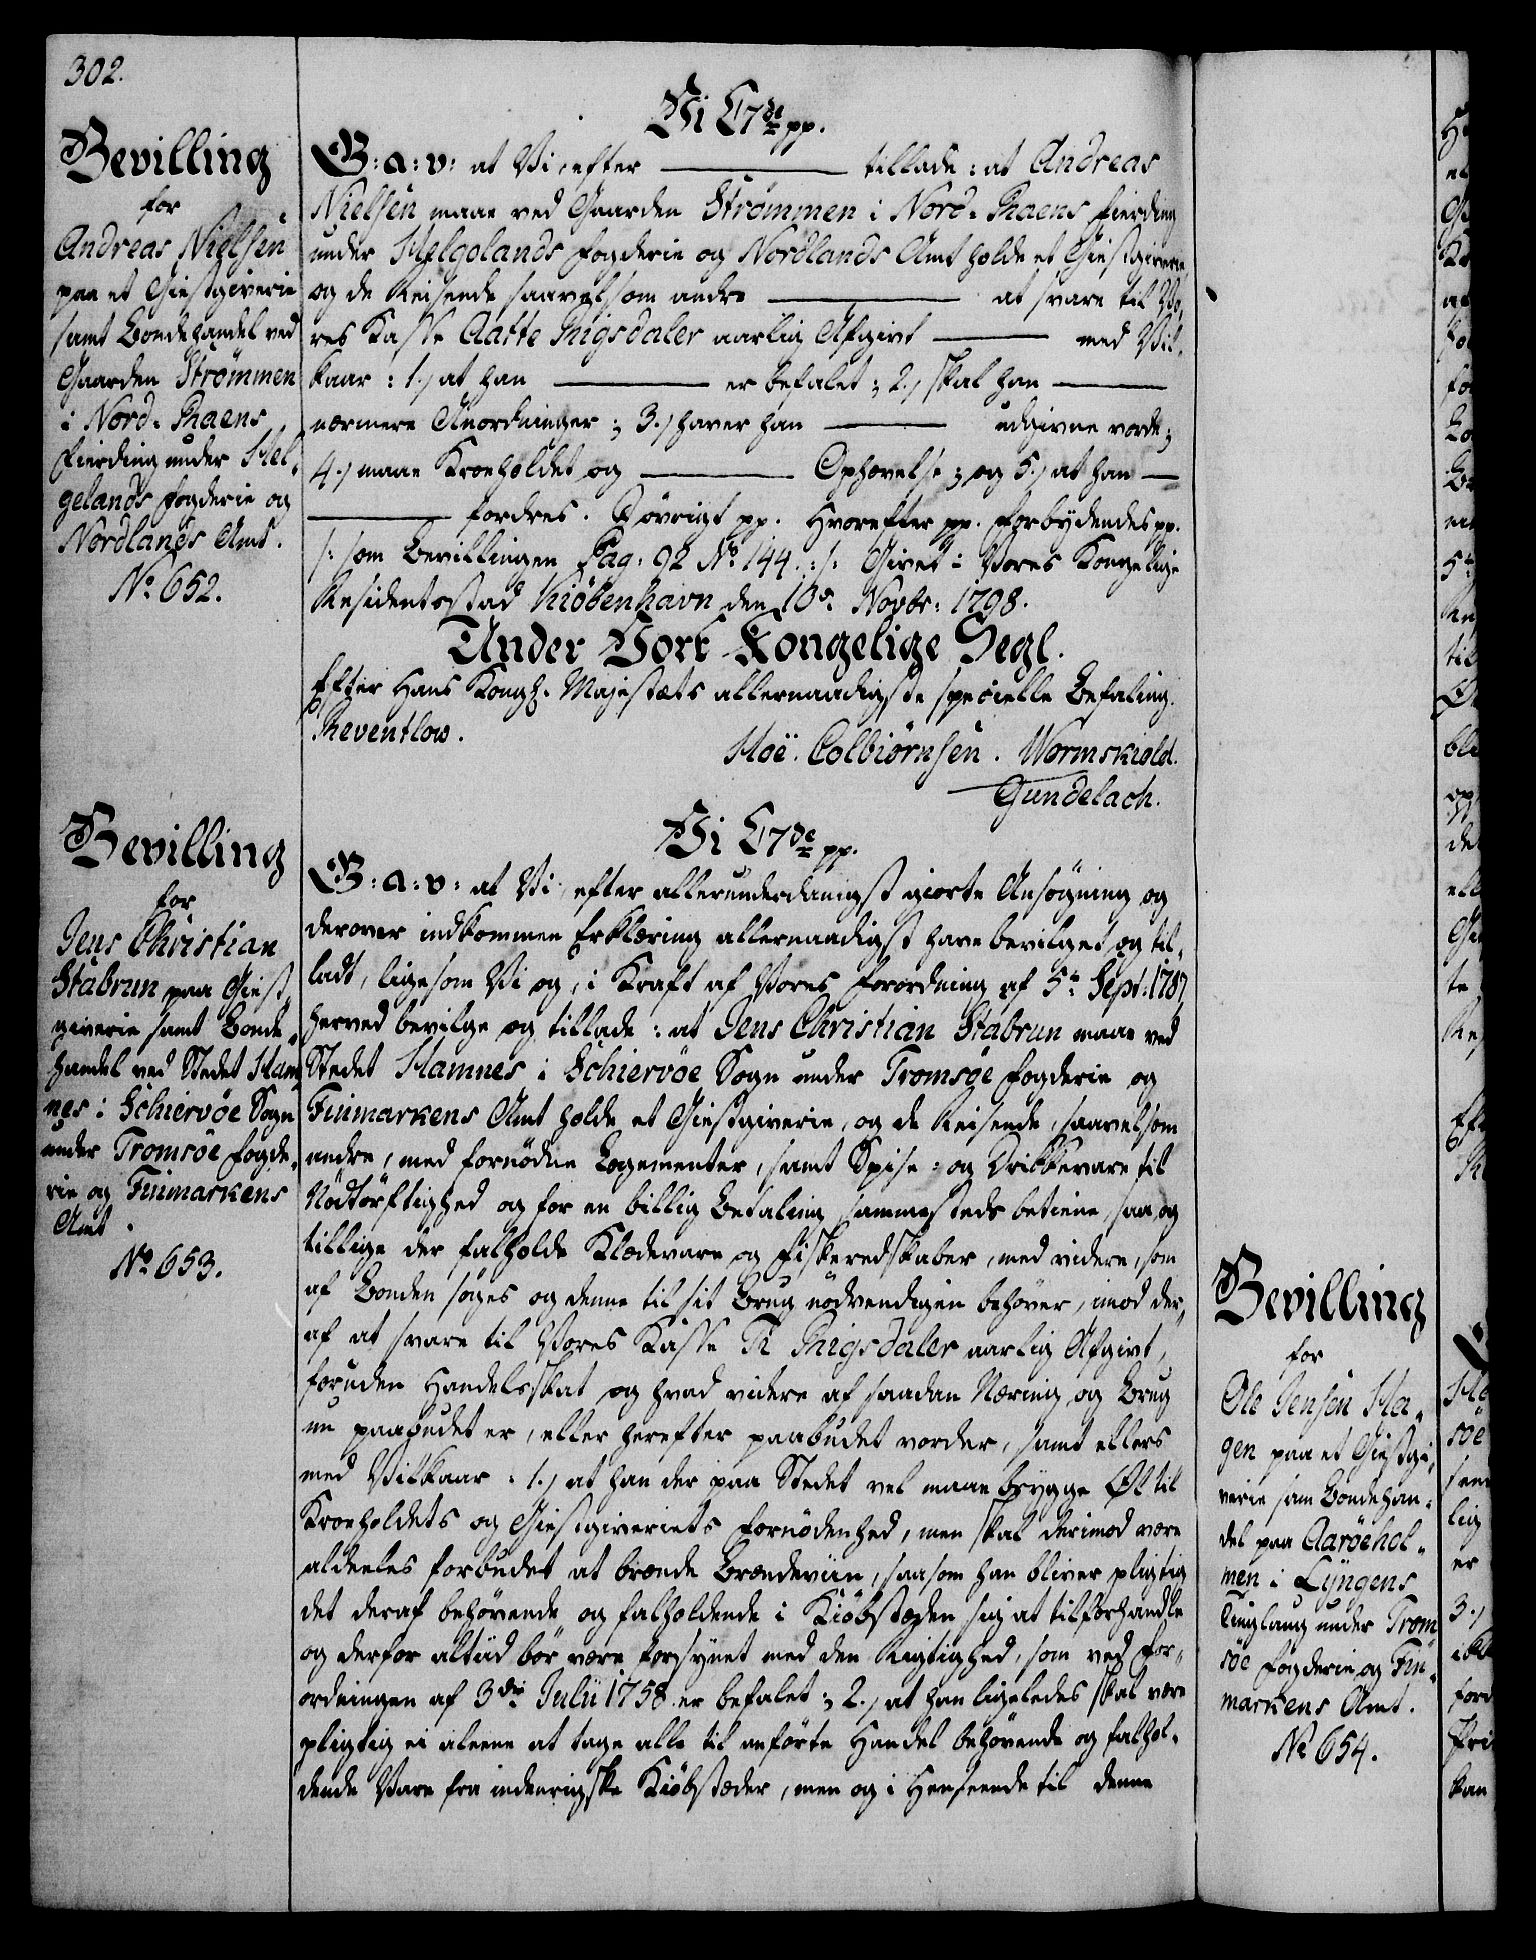 302.
Bevilling
for
Andreas Nielsen
paa et Giestgiverie
samt Bondehandel ved
Gaarden Strømmen
i Nord-Raens
Fierding under Hel-
gelands Fogderie og
Nordlands Amt.
No. 652.
Vi C7de pp.
G: a: v: at Vi, efter ——— tillade: at Andreas
Nielsen maae ved Gaarden Strømmen i Nord-Raens Fierding
under Helgolands Fogderie og Nordlands Amt holde et Giestgiverie,
og de Reisende saavelsom andre ——— at svare til Vo-
res Kasse Aatte Rigsdaler aarlig Afgivt ——— med Vil-
kaar: 1.) at han ——— er befalet; 2.) skal han ———
nærmere Anordninger; 3.) haver han ——— udgivne vorde;
4.) maae Kroeholdet og ——— Ophævelse; og 5.) at han —
——— fordres. I øvrigt pp. Hvorefter pp. Forbydendes pp.
/: som Bevillingen Pag: 92 No. 144. :/: Givet i Vores Kongelige
Residentsstad Kiöbenhavn den 10de Novbr: 1798.
Under Vort Kongelige Segl.
Efter Hans Kongl. Majestæts allernaadigste specielle Befaling.
Reventlow.
Hoë. Colbiørnsen. Wormskiold.
Gundelach.
Bevilling
for
Jens Christian
Stabrun paa Giest-
giverie samt Bonde-
handel ved Stedet Ham-
nes i Schiervöe Sogn
under Tromsöe Fogde-
rie og Finmarkens
Amt.
No. 653.
Vi C7de pp.
G: a: v: at Vi, efter allerunderdanigst giorte Ansøgning og
derover indkommen Erklæring allernaadigst have bevilget og til-
ladt, ligesom Vi og, i Kraft af Vores Forordning af 5te Sept: 1787,
herved bevilge og tillade: at Jens Christian Stabrun maae ved
Stedet Hamnes i Schiervöe Sogn under Tromsöe Fogderie og
Finmarkens Amt holde et Giestgiverie, og de Reisende, saavelsom
andre, med fornödne Logementer, samt Spise- og Drikkevare til
Nödtörftighed og for en billig Betaling sammesteds betiene, saa og
tillige der falholde Klædevare og Fiskeredskaber, med videre, som
af Bonden söges og denne til sit Brug nödvendigen behöver, imod der-
af at svare til Vores Kasse Ti Rigsdaler aarlig Afgivt,
foruden Handelsskat og hvad videre af saadan Næring og Brug
nu paabudet er, eller herefter paabudet vorder, samt ellers
med Vilkaar: 1.) at han der paa Stedet vel maae brygge Øl til
Kroeholdets og Giestgiveriets Fornödenhed, men skal derimod være
aldeeles forbudet at brænde Brændeviin, saasom han bliver pligtig
det deraf behövende og falholdende i Kiöbstæden sig at tilforhandle
og derfor altiid bör være forsynet med den Rigtighed, som ved For-
ordningen af 3die Julii 1758 er befalet; 2.) at han ligeledes skal være
pligtig ei aleene at tage alle til anförte Handel behövende og falhol-
dende Vare fra indenrigske Kiöbstæder, men og i Henseende til denne
Bevilling
for
Ole Jensen Ha-
gen paa et Giestgi-
verie sam Bondehan-
del paa Aaröehol-
men i Lyngens
Tinglaug under Trom-
söe Fogderie og Fin-
markens Amt.
No 654.